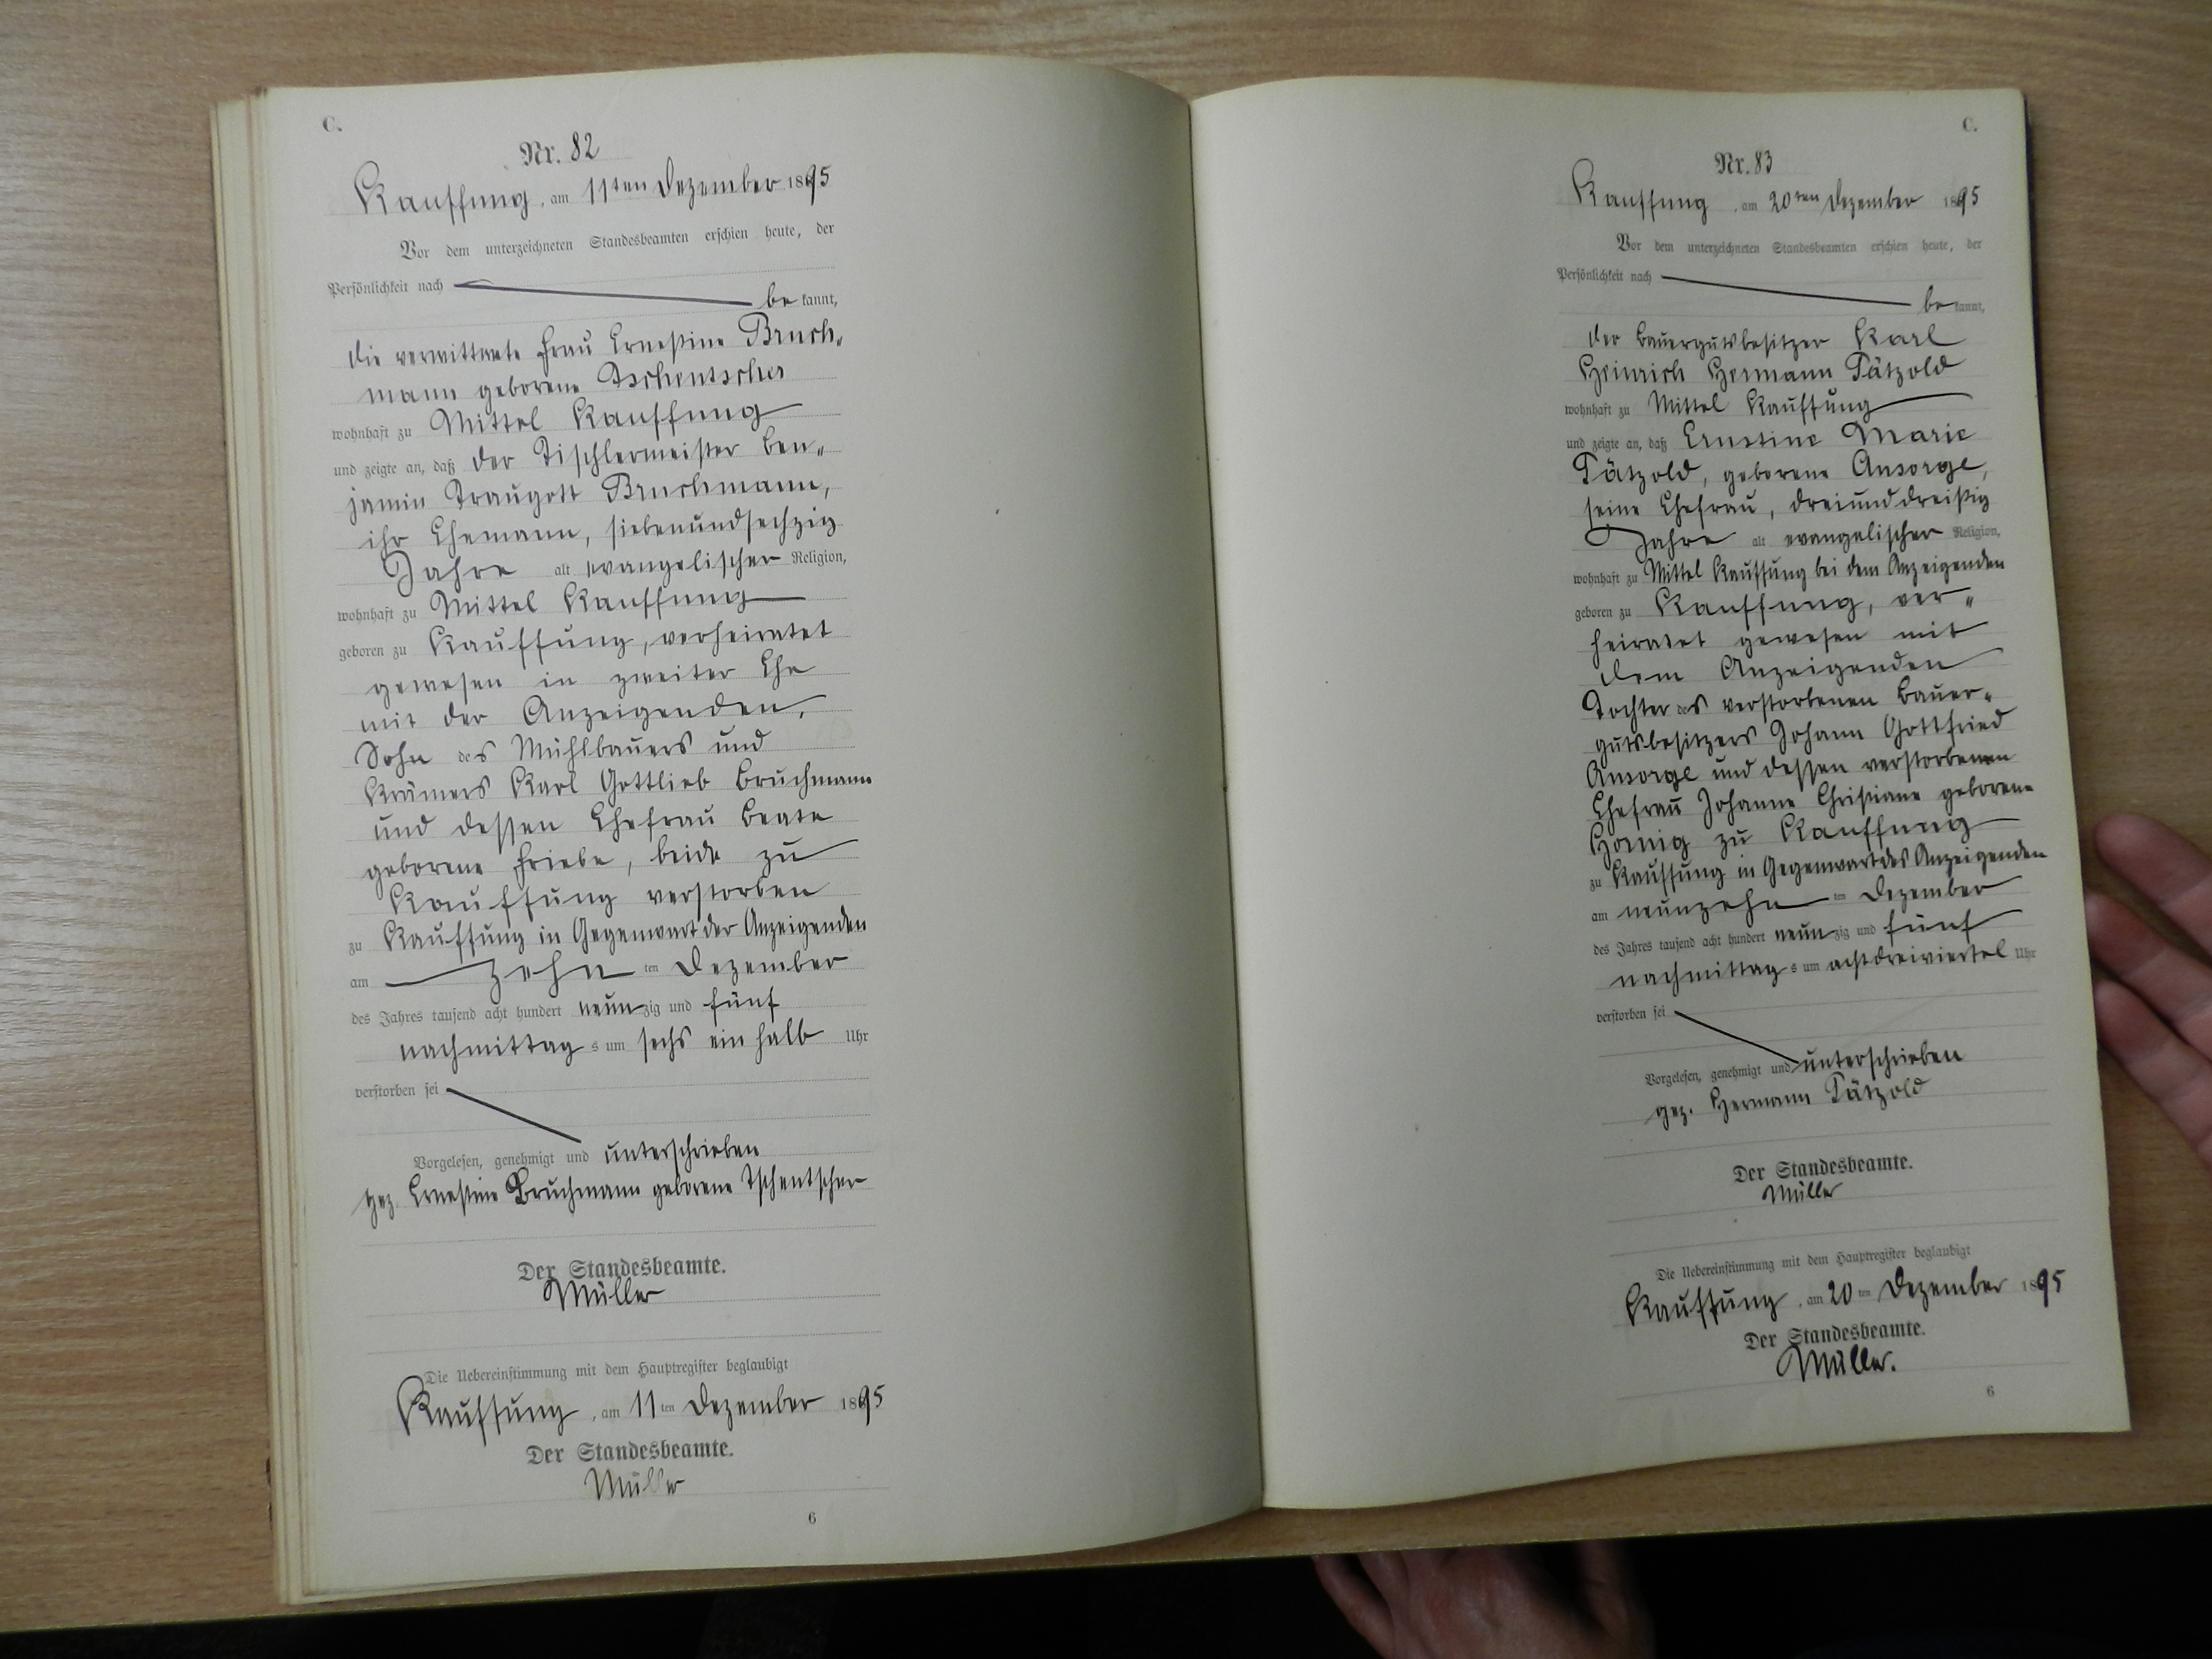 C.
Nr. 82
Kauffung, am 11ten Dezember 1895
Vor dem unterzeichneten Standesbeamten erschien heute, der
Persönlichkeit nach
be kannt,
die verwittwete Frau Ernestine Bruch„
mann geborene Tschentscher
wohnhaft zu Mittel Kauffung
und zeigte an, daß der Tischlermeister Ben„
jamin Traugott Bruchmann,
ihr Ehemann, siebenundsechzig
Jahre alt evangelischer Religion,
wohnhaft zu Mittel Kauffung
geboren zu Kauffung, verheiratet
gewesen in zweiter Ehe
mit der Anzeigenden,
Sohn des Mühlbauers und
Krämers Karl Gottlieb Bruchmann
und dessen Ehefrau Beate
geborene Friebe, beide zu
Kauffung verstorben
zu Kauffung in Gegenwart der Anzeigenden
am zehn ten Dezember
des Jahres tausend acht hundert neun zig und fünf
nachmittag s um sechs ein halb Uhr
verstorben sei
Vorgelesen, genehmigt und unterschrieben
gez. Ernestine Bruchmann geborene Tschentscher
Der Standesbeamte.
Müller
Die Uebereinstimmung mit dem Hauptregister beglaubigt
Kauffung, am 11 ten Dezember 1895
Der Standesbeamte.
Müller
6
C.
Nr. 83
Kauffung, am 20ten Dezember 1895
Vor dem unterzeichneten Standesbeamten erschien heute, der
Persönlichkeit nach
be kannt,
der Bauergutsbesitzer Karl
Heinrich Hermann Pätzold
wohnhaft zu Mittel Kauffung
und zeigte an, daß Ernstine Marie
Pätzold, geborene Ansorge,
seine Ehefrau, dreiunddreißig
Jahre alt evangelischer Religion,
wohnhaft zu Mittel Kauffung bei dem Anzeigenden
geboren zu Kauffung, ver„
heiratet gewesen mit
dem Anzeigenden
Tochter des verstorbenen Bauer„
gutsbesitzers Johann Gottfried
Ansorge und dessen verstorbenen
Ehefrau Johanne Christiane geborene
Hornig zu Kauffung
zu Kauffung in Gegenwart des Anzeigenden
am neunzehn ten Dezember
des Jahres tausend acht hundert neun zig und fünf
nachmittag s um achtdreiviertel Uhr
verstorben sei
Vorgelesen, genehmigt und unterschrieben
gez. Hermann Pätzold
Der Standesbeamte.
Müller
Die Uebereinstimmung mit dem Hauptregister beglaubigt
Kauffung, am 20 ten Dezember 1895
Der Standesbeamte.
Müller.
6